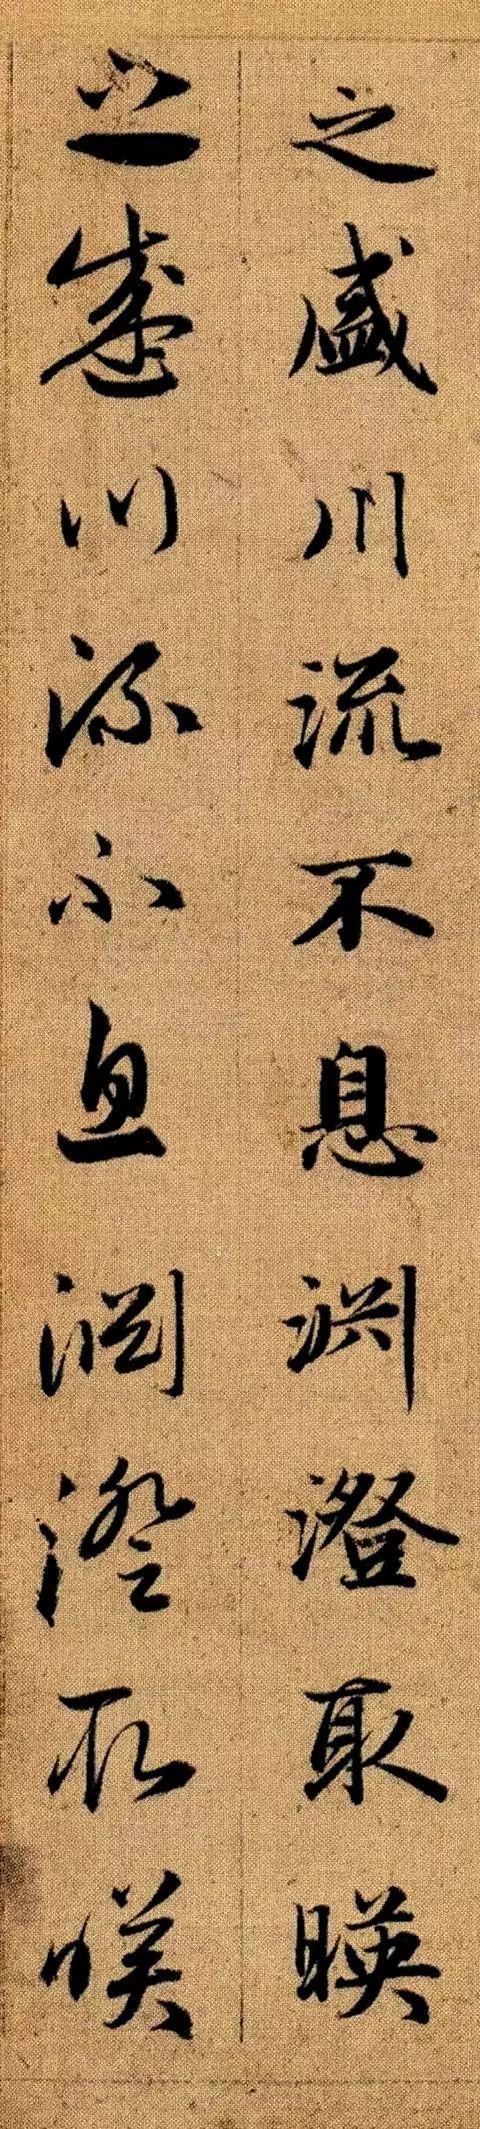 之盛川流不息渊澄取暎
之盛川流不息渊澄取暎